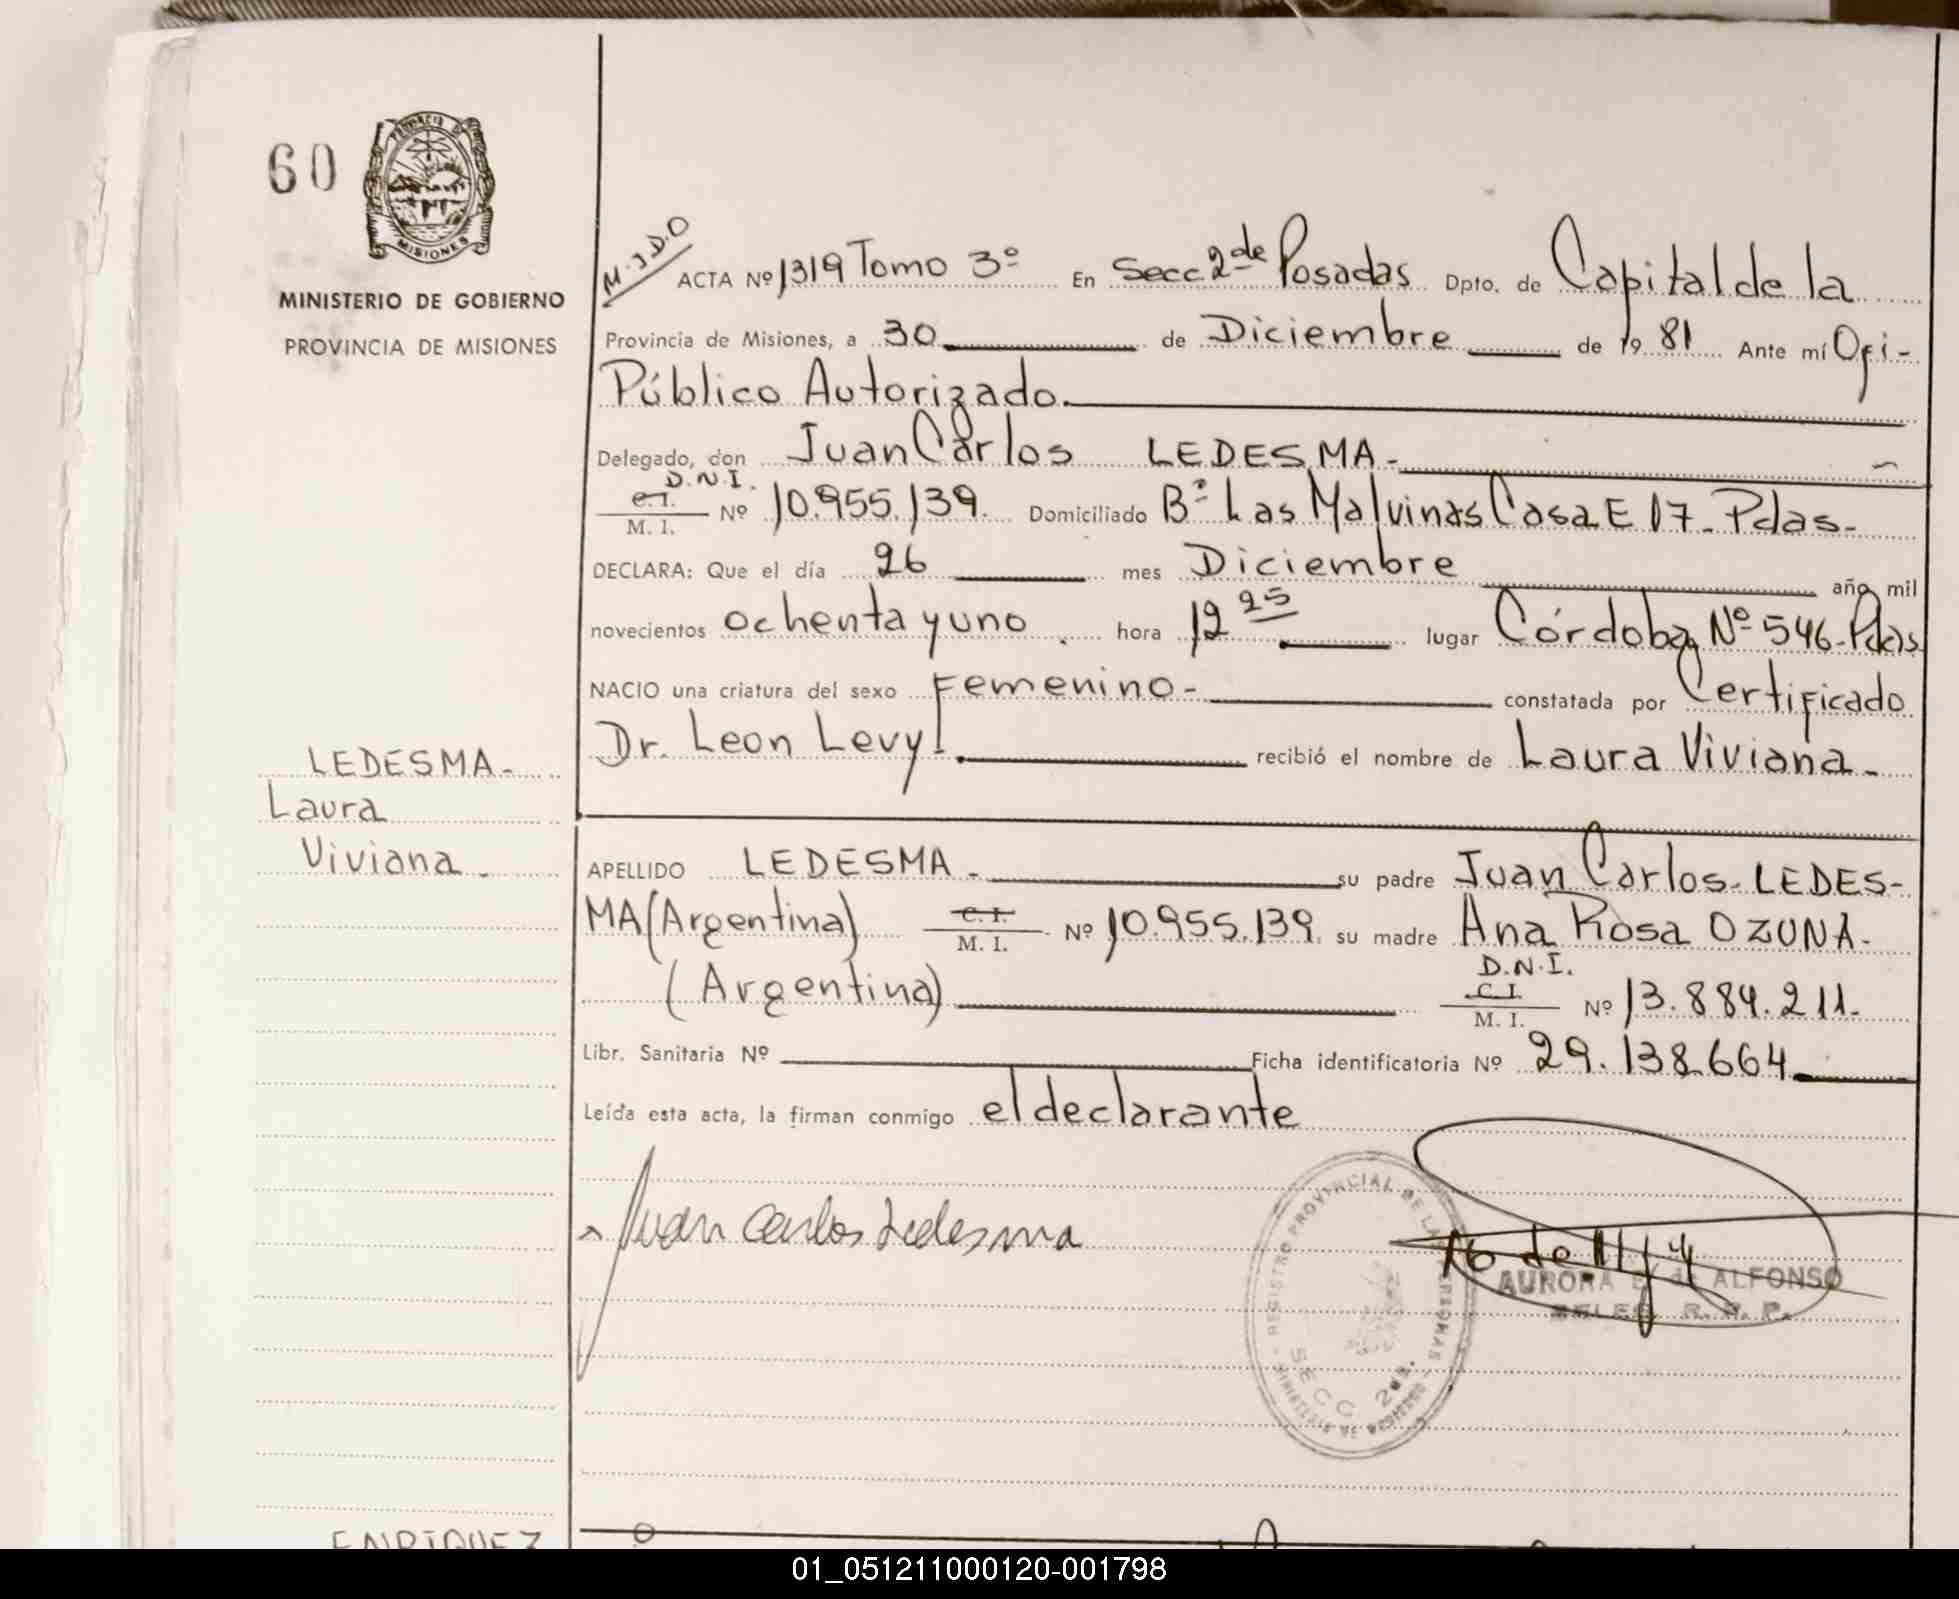 60
PROVINCIA DE
MISIONES
MINISTERIO DE GOBIERNO
PROVINCIA DE MISIONES
LEDESMA-
Laura
Viviana.
M.I.D.O
ACTA Nº 1319 Tomo 3º En Secc. 2de Posadas Dpto. de Capital de la
Provincia de Misiones, a 30 de Diciembre de 19 81 Ante mí Ofi-
Público Autorizado.
Delegado, don Juan Carlos LEDESMA-
D.N.I.
C.I.
M. I. Nº 10.955.139. Domiciliado Bº Las Malvinas Casa E 17- Pdas-
DECLARA: Que el día 26 mes Diciembre año mil
novecientos ochenta y uno. hora 12 25 lugar Córdoba Nº 546-Pdas
NACIO una criatura del sexo Femenino- constatada por Certificado
Dr. Leon Levy!. recibió el nombre de Laura Viviana-
APELLIDO LEDESMA- su padre Juan Carlos-LEDES-
MA (Argentina) C.I. M. I. Nº 10.955.139. su madre Ana Rosa OZUNA-
D.N.I.
(Argentina) C.I. M. I. Nº 13.884.211-
Libr. Sanitaria Nº Ficha identificatoria Nº 29.138.664
Leída esta acta, la firman conmigo el declarante
Juan Carlos Ledesma
REGISTRO PROVINCIAL DE LAS PERSONAS
MINISTERIO DE GOBIERNO
SECC 2da.
AURORA de ALFONSO
R. P. P.
ENRIQUEZ
01_051211000120-001798